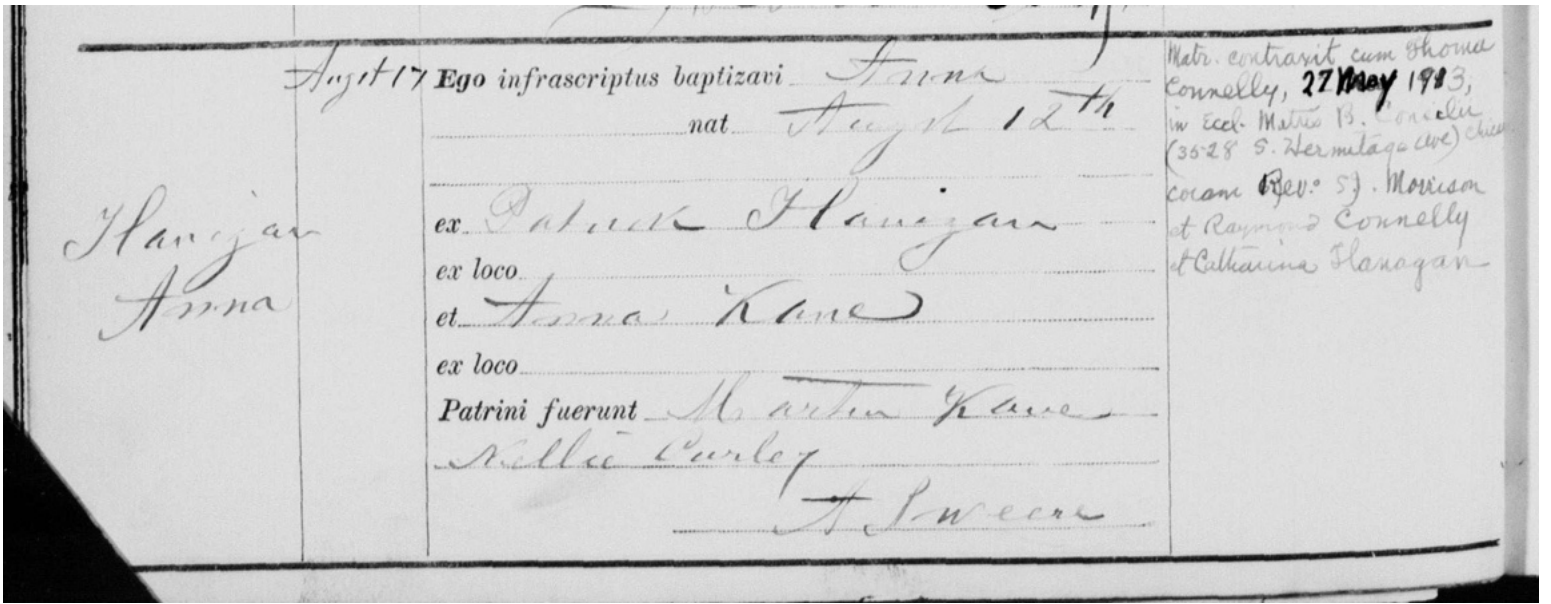 Augst 17
Ego infrascriptus baptizavi Anna
nat Augst 12th
Flanigan
Anna
ex Patrick Flanigan
ex loco
et Anna Kane
ex loco
Patrini fuerunt Martin Kane
Nellie Curley
A Sweere
Matr. contraxit cum Thoma
Connelly, 27 May 1913,
in Eccl. Matris B. Consilii
(3528 S. Hermitage Ave)
coram Rev. S.J. Morrison
et Raymond Connelly
et Catharina Flanagan